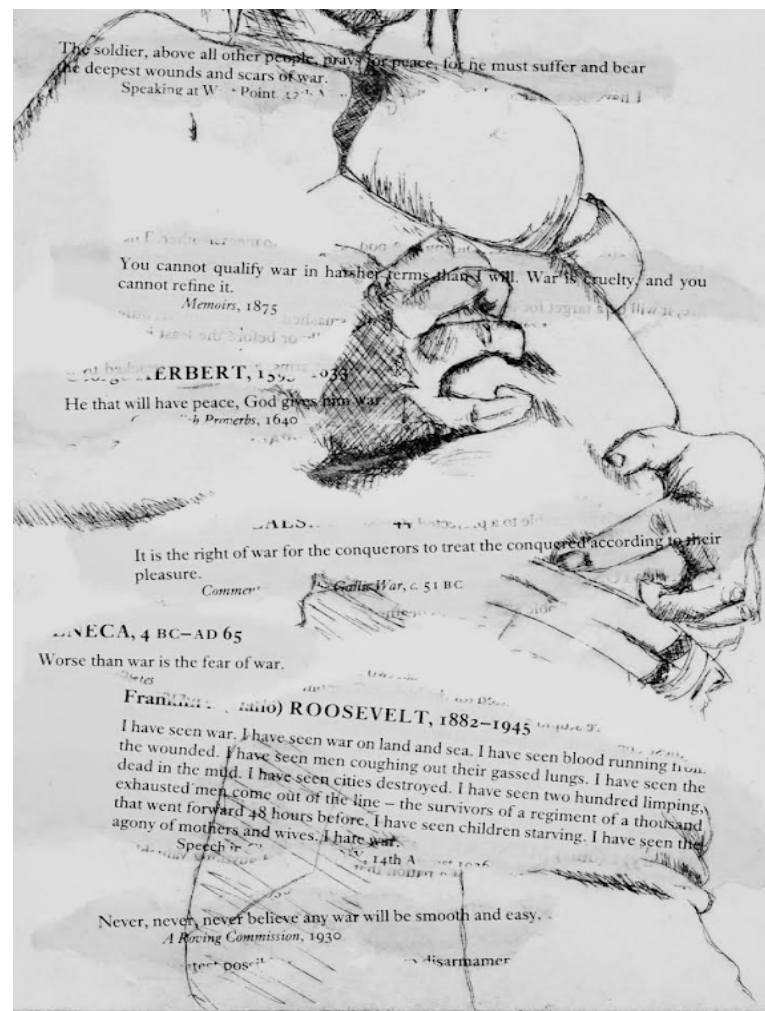 The soldier, above all other people, prays for peace, for he must suffer and bear
the deepest wounds and scars of war.
Speaking at Point
You cannot qualify war in harsher terms than I will. War is cruelty, and you
cannot refine it.
Memoirs, 1875
HERBERT,
He that will have peace, God gives him war.
Proverbs, 1640
It is the right of war for the conquerors to treat the conquered according to their
pleasure.
Gallic War, c. 51 BC
SENECA, 4 BC–AD 65
Worse than war is the fear of war.
ROOSEVELT, 1882–1945
I have seen war. I have seen war on land and sea. I have seen blood running from
the wounded. I have seen men coughing out their gassed lungs. I have seen the
dead in the mud. I have seen cities destroyed. I have seen two hundred limping,
exhausted men come out of the line – the survivors of a regiment of a thousand
that went forward 48 hours before. I have seen children starving. I have seen the
agony of mothers and wives. I hate war.
Speech 14th
Never, never, never believe any war will be smooth and easy.
A Roving Commission, 1930